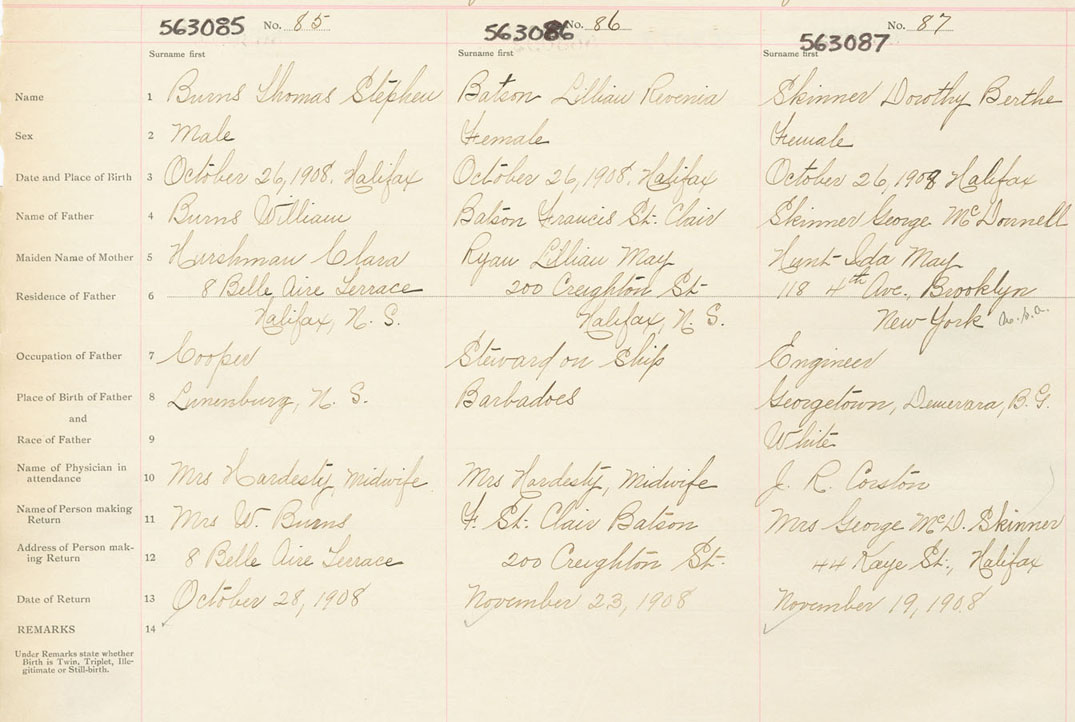 563085 No. 85 563086 No. 86 563087 No. 87
Surname first Surname first Surname first
Name 1 Burns Thomas Stephen Batson Lillian Revenia Skinner Dorothy Berthe
Sex 2 Male Female Female
Date and Place of Birth 3 October 26, 1908. Halifax October 26, 1908. Halifax October 26, 1908 Halifax
Name of Father 4 Burns William Batson Francis St. Clair Skinner George McDonnell
Maiden Name of Mother 5 Hirshman Clara Ryan Lillian May Hunt Ida May
Residence of Father 6 8 Belle Aire Terrace 200 Creighton St. 118 4th Ave., Brooklyn
Halifax, N. S. Halifax, N. S. New York U.S.A.
Occupation of Father 7 Cooper Steward on Ship Engineer
Place of Birth of Father 8 Lunenburg, N. S. Barbadoes Georgetown, Demerara, B.G.
and
Race of Father 9 White
Name of Physician in
attendance 10 Mrs Hardesty, midwife Mrs Hardesty, Midwife J. R. Corston
Name of Person making
Return 11 Mrs W. Burns F. St. Clair Batson Mrs George McD. Skinner
Address of Person mak-
ing Return 12 8 Belle Aire Terrace 200 Creighton St. 44 Kaye St., Halifax
Date of Return 13 October 28, 1908 November 23, 1908 November 19, 1908
REMARKS 14
Under Remarks state whether
Birth is Twin, Triplet, Ille-
gitimate or Still-birth.